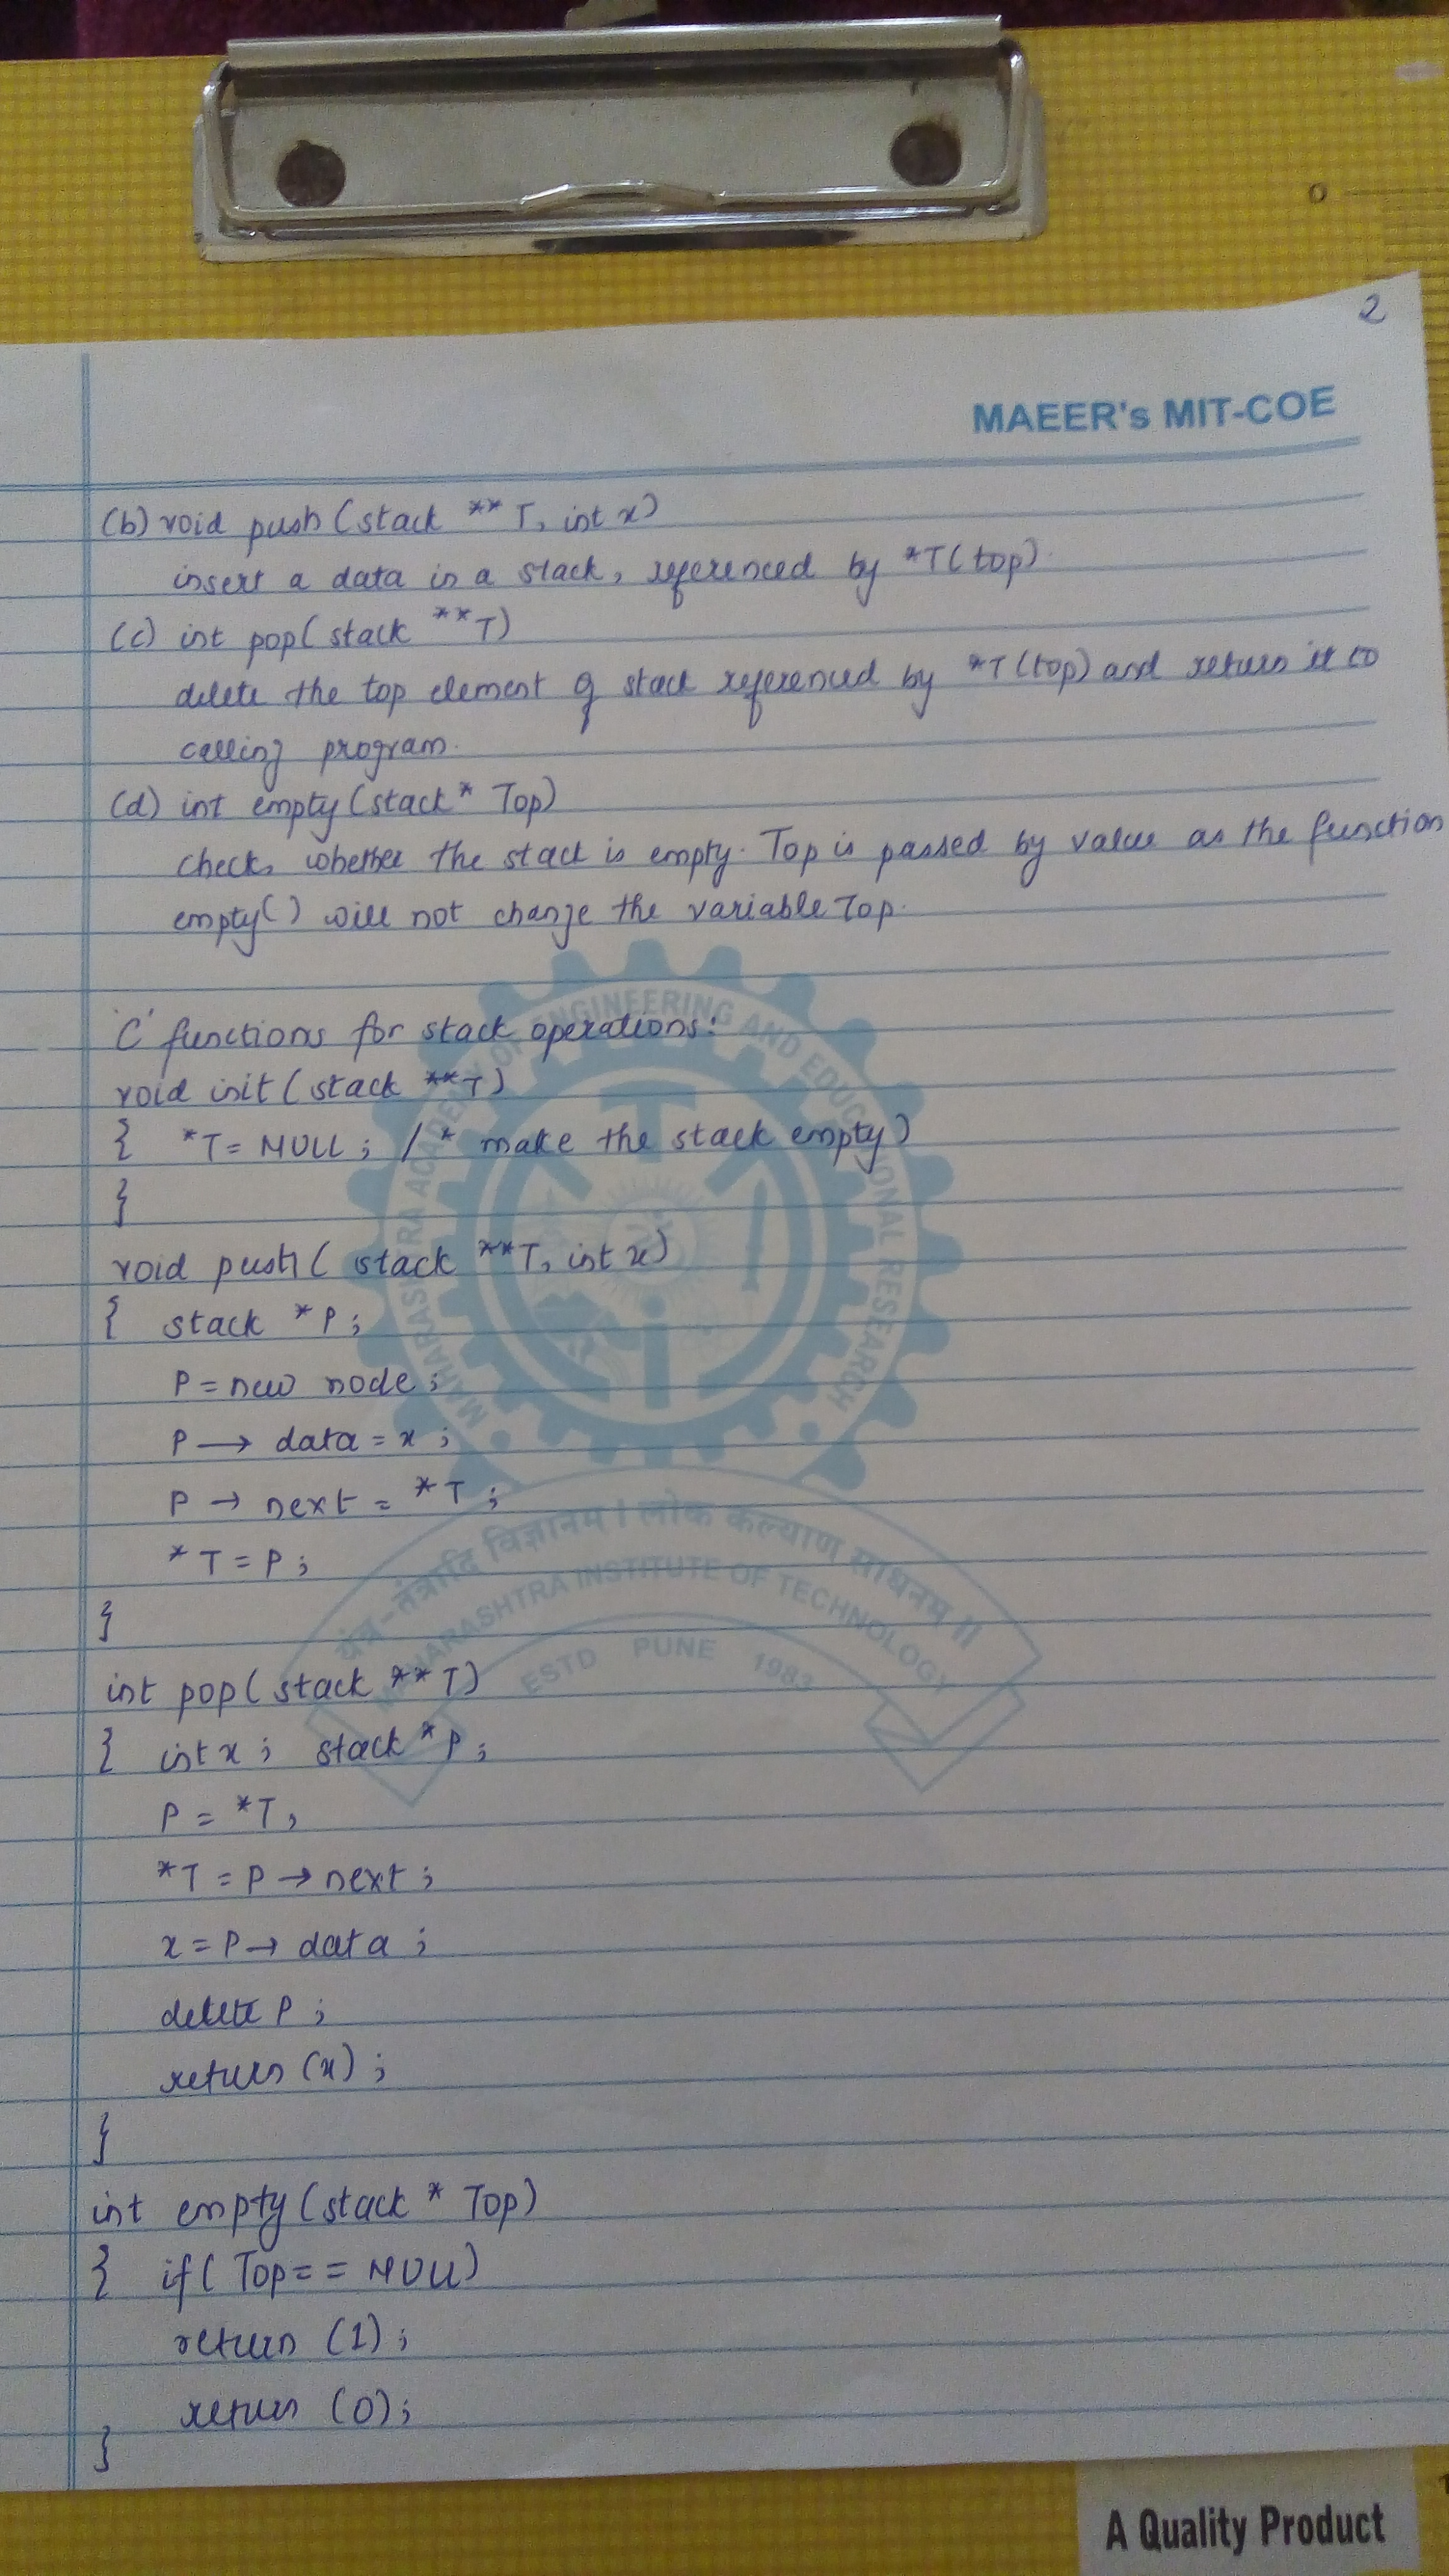 2
MAEER's MIT-COE
(b) void push (stack ** T, int x)
insert a data in a stack, referenced by *T(top).
(c) int pop( stack **T)
delete the top element of stack referenced by *T(top) and return it to
calling program.
(d) int empty (stack* Top)
check, whether the stack is empty. Top is passed by value as the function
empty() will not change the variable Top.
'C' functions for stack operations:
void init (stack **T)
{ *T= NULL ; /* make the stack empty)
}
void push( stack **T, int x)
{ stack *P;
P = new node ;
P → data = x ;
P → next = *T ;
*T = P ;
}
int pop( stack ** T)
{ int x ; stack *P ;
P = *T,
*T = P → next ;
x = P → data ;
delete P ;
return (x) ;
}
int empty (stack * Top)
{ if( Top== NULL)
return (1) ;
return (0);
}
MAHARASHTRA ACADEMY OF ENGINEERING AND EDUCATIONAL RESEARCH
यंत्र-तंत्रादि विज्ञानम। लोक कल्याण साधनम॥
MAHARASHTRA INSTITUTE OF TECHNOLOGY
ESTD PUNE 1983
A Quality Product